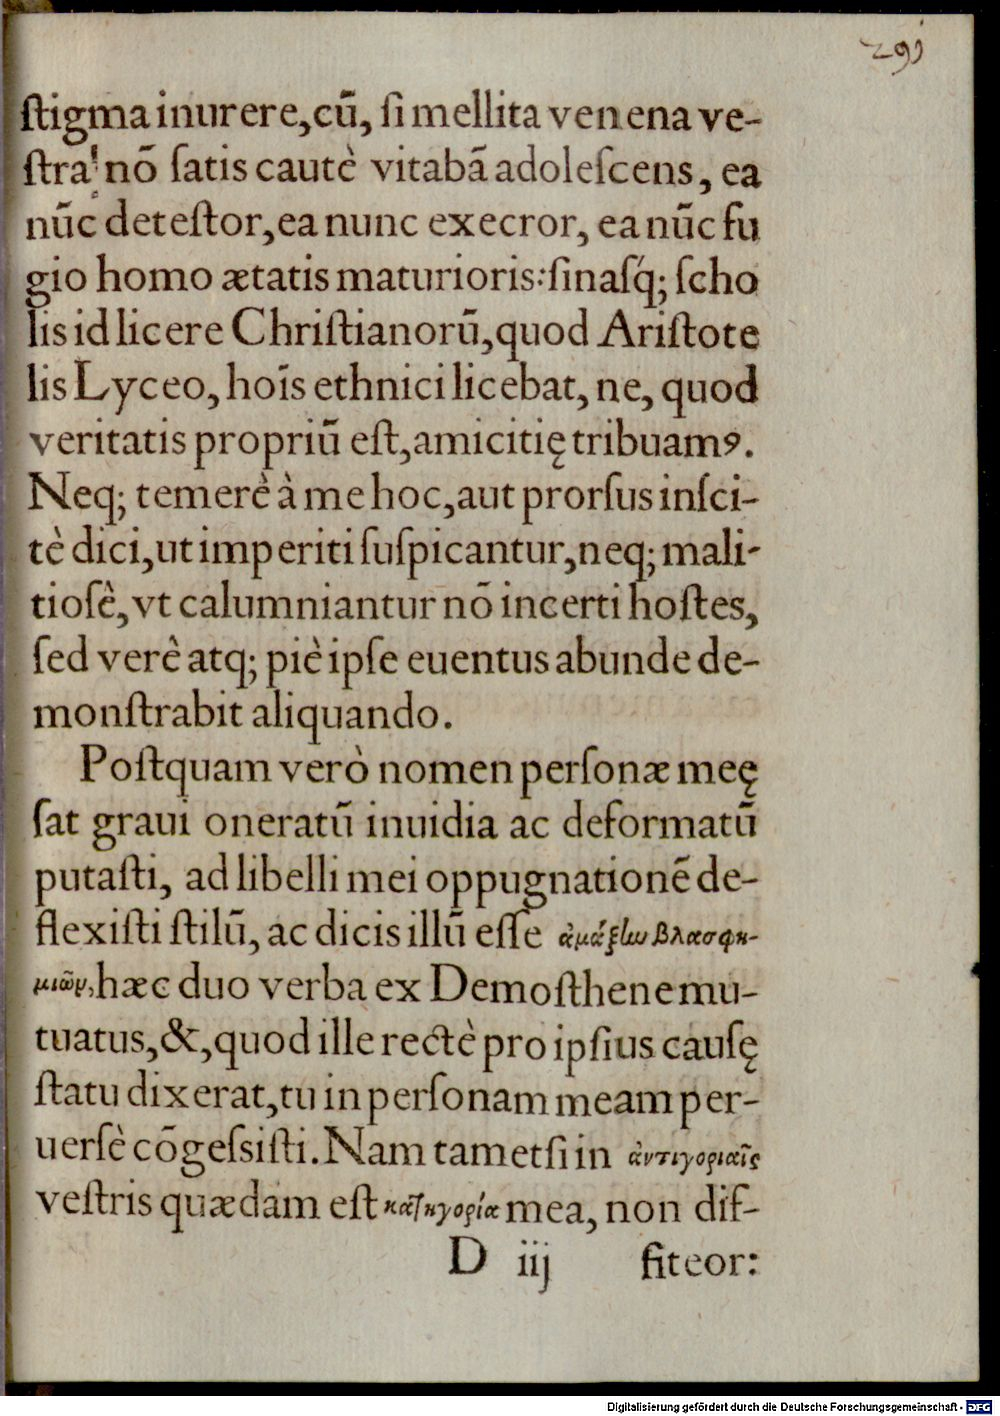 291
ſtigma inurere, cũ, ſi mellita venena ve-
ſtra nõ ſatis cautè vitabã adoleſcens, ea
nũc deteſtor, ea nunc execror, ea nũc fu
gio homo ætatis maturioris: ſinaſq́; ſcho
lis id licere Chriſtianorũ, quod Ariſtote
lis Lyceo, hoĩs ethnici licebat, ne, quod
veritatis propriũ eſt, amicitię tribuamꝰ.
Neq; temerè à me hoc, aut prorſus inſci-
tè dici, ut imperiti ſuſpicantur, neq; mali-
tioſè, vt calumniantur nõ incerti hoſtes,
ſed verè atq; piè ipſe euentus abunde de-
monſtrabit aliquando.
Poſtquam verò nomen perſonæ meę
ſat graui oneratũ inuidia ac deformatũ
putaſti, ad libelli mei oppugnationẽ de-
flexiſti ſtilũ, ac dicis illũ eſſe ἁμάξην βλασφη-
μιῶν, hæc duo verba ex Demoſthene mu-
tuatus, &, quod ille rectè pro ipſius cauſę
ſtatu dixerat, tu in perſonam meam per-
uerſè cõgeſsiſti. Nam tametſi in ἀντιγοριαῖς
veſtris quædam eſt κατηγορία mea, non dif-
D iij fiteor:
Digitalisierung gefördert durch die Deutsche Forschungsgemeinschaft - DFG